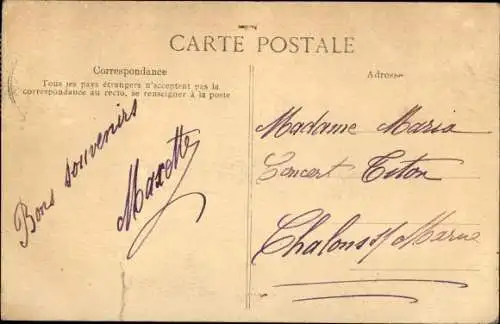 CARTE POSTALE
Correspondance
Tous les pays étrangers n'acceptent pas la
correspondance au recto, se renseigner à la poste
Bons souvenirs
Maxette
Adresse
Madame Maria
Concert Titon
Chalons s/ Marne